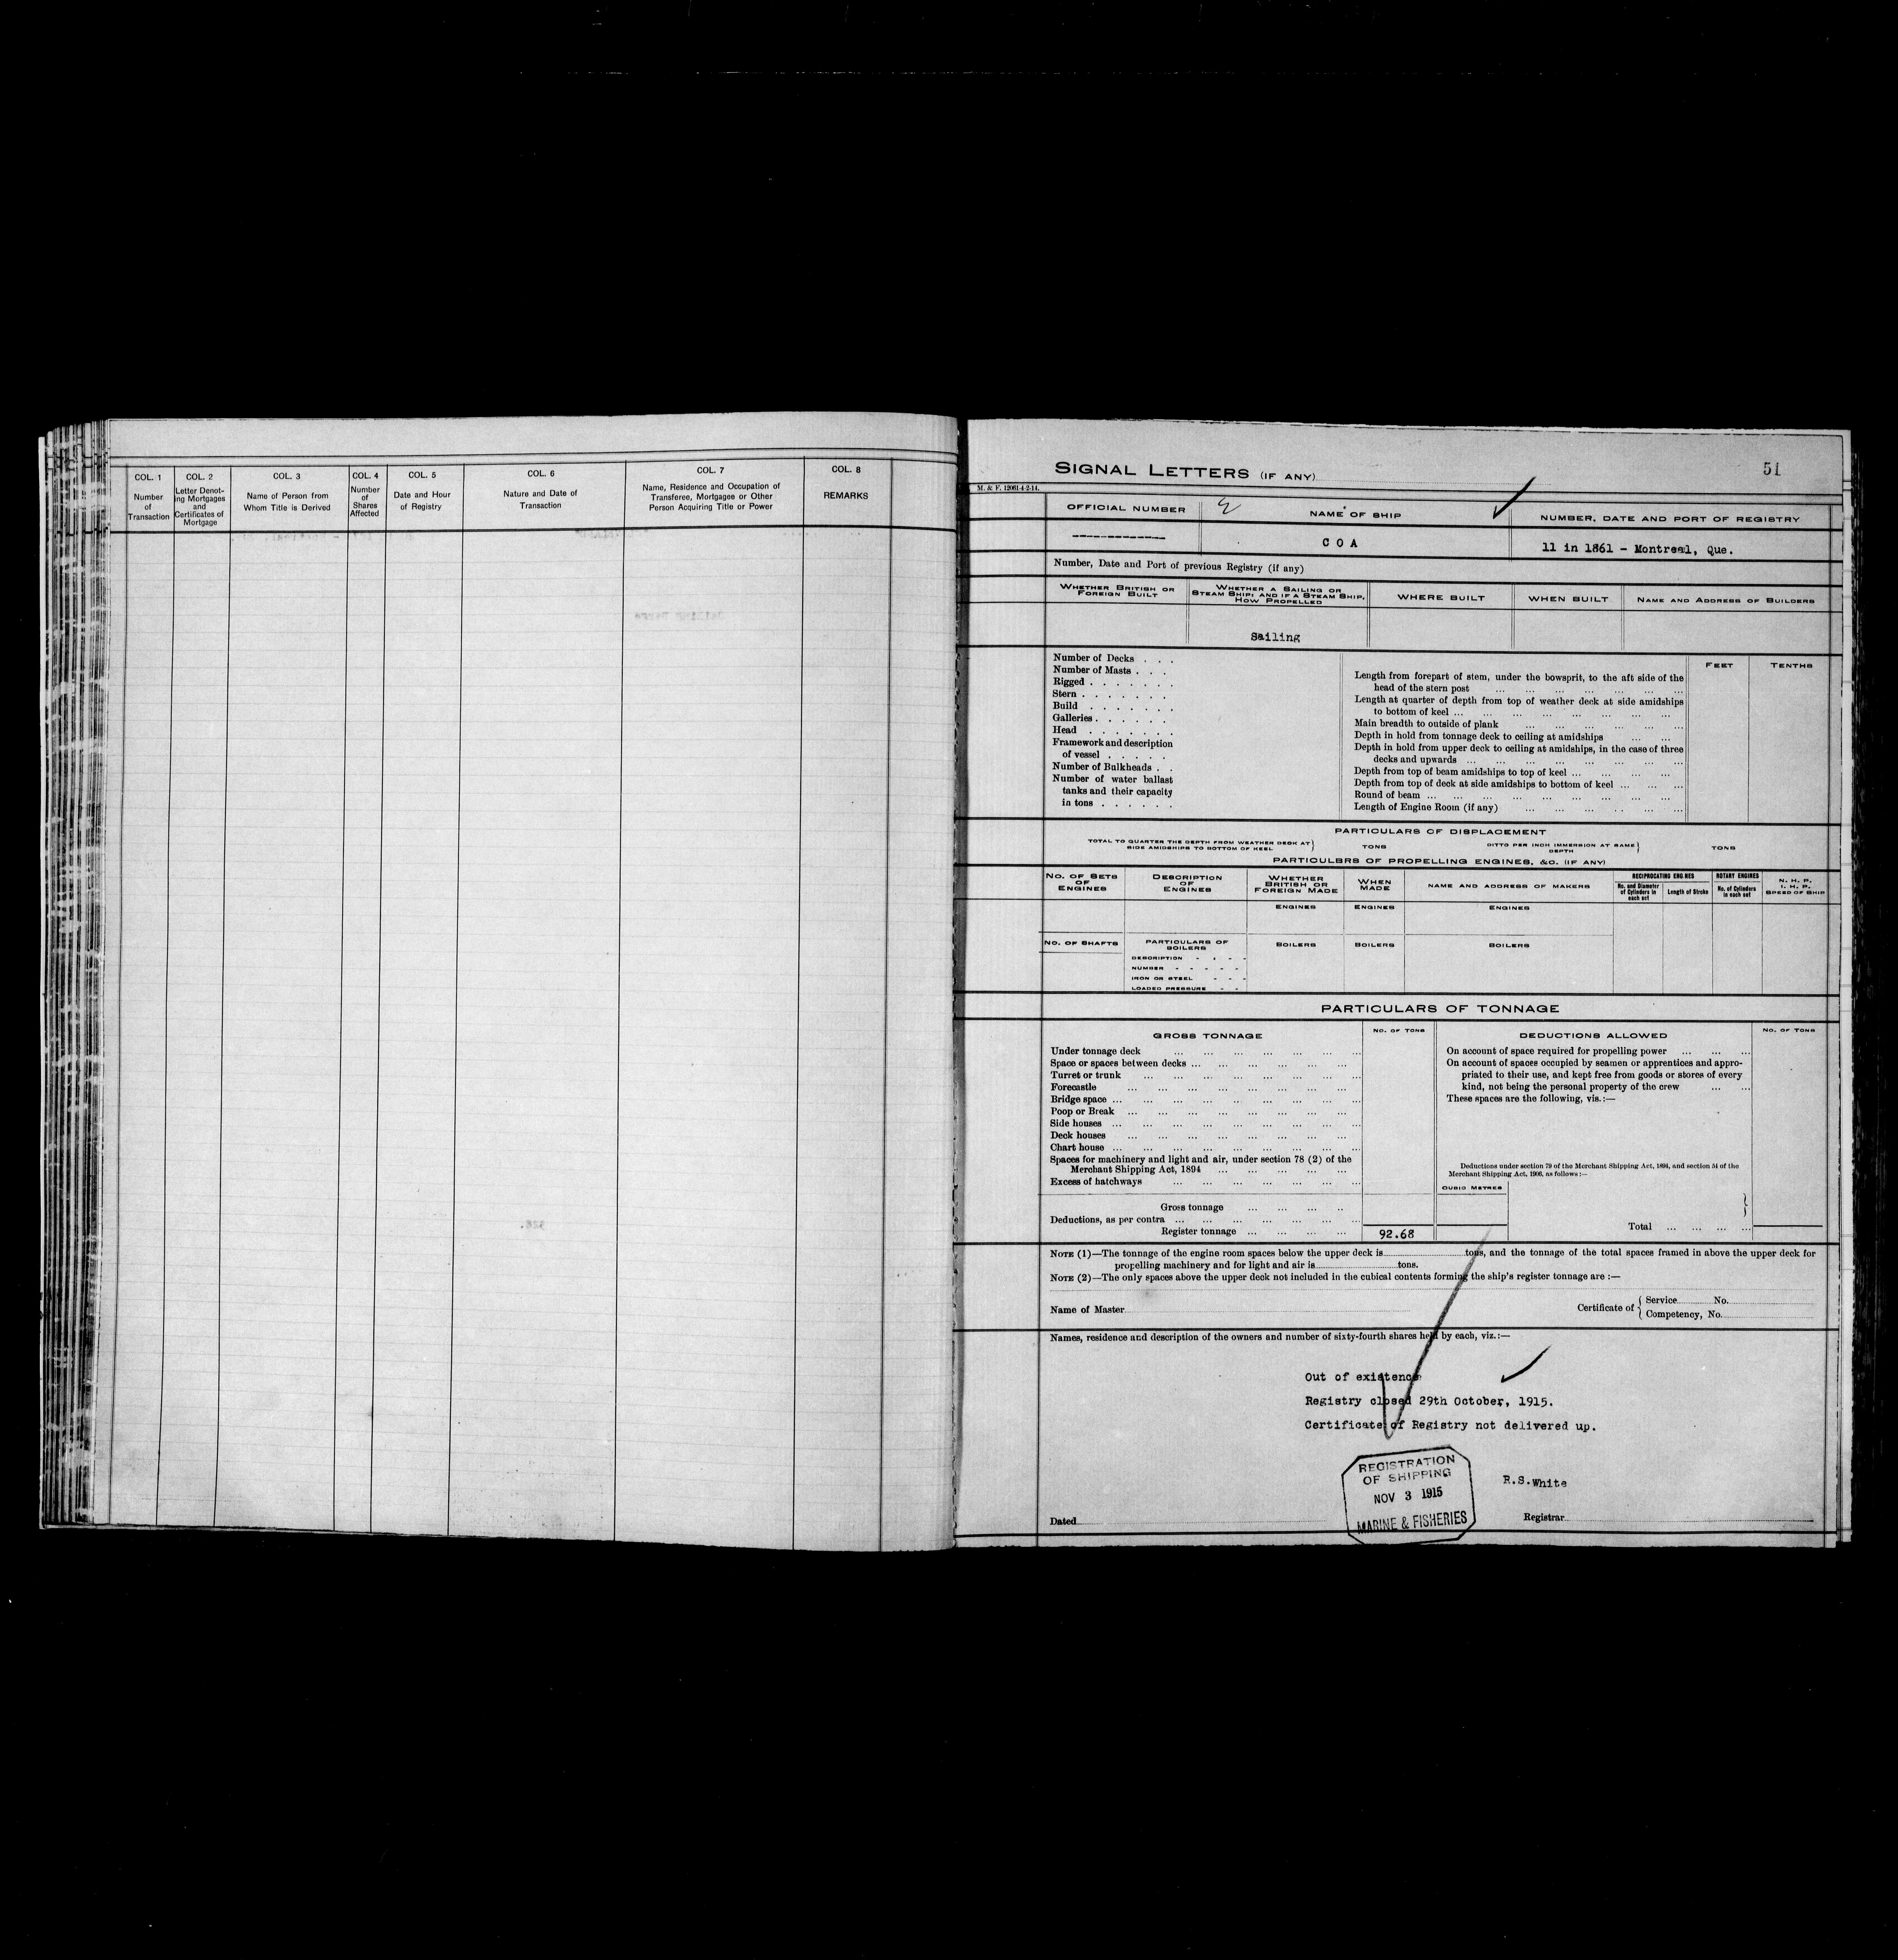 COL. 1
Number
of
Transaction
COL. 2
Letter Denot-
ing Mortgages
and
Certificates of
Mortgage
COL. 3
Name of Person from
Whom Title is Derived
COL. 4
Number
of
Shares
Affected
COL. 5
Date and Hour
of Registry
COL. 6
Nature and Date of
Transaction
COL. 7
Name, Residence and Occupation of
Transferee, Mortgagee or Other
Person Acquiring Title or Power
COL. 8
REMARKS
SIGNAL LETTERS (IF ANY)
51
M. & F. 12061-4-2-14.
OFFICIAL NUMBER
NAME OF SHIP
NUMBER, DATE AND PORT OF REGISTRY
-------------
C O A
11 in 1861 - Montreal, Que.
Number, Date and Port of previous Registry (if any)
WHETHER BRITISH OR
FOREIGN BUILT
WHETHER A SAILING OR
STEAM SHIP; AND IF A STEAM SHIP,
HOW PROPELLED
WHERE BUILT
WHEN BUILT
NAME AND ADDRESS OF BUILDERS
Sailing
Number of Decks . . .
Number of Masts . . .
Rigged . . . . . . .
Stern . . . . . . .
Build . . . . . . .
Galleries . . . . . .
Head . . . . . . .
Framework and description
of vessel . . . . .
Number of Bulkheads . .
Number of water ballast
tanks and their capacity
in tons . . . . . .
FEET
TENTHS
Length from forepart of stem, under the bowsprit, to the aft side of the
head of the stern post ... ... ... ... ... ... ...
Length at quarter of depth from top of weather deck at side amidships
to bottom of keel ... ... ... ... ... ... ... ...
Main breadth to outside of plank ... ... ... ... ... ...
Depth in hold from tonnage deck to ceiling at amidships ... ...
Depth in hold from upper deck to ceiling at amidships, in the case of three
decks and upwards ... ... ... ... ... ... ... ...
Depth from top of beam amidships to top of keel ... ... ... ...
Depth from top of deck at side amidships to bottom of keel ... ... ...
Round of beam ... ... ... ... ... ... ... ... ...
Length of Engine Room (if any) ... ... ... ... ... ...
PARTICULARS OF DISPLACEMENT
TOTAL TO QUARTER THE DEPTH FROM WEATHER DECK AT
SIDE AMIDSHIPS TO BOTTOM OF KEEL
TONS
DITTO PER INCH IMMERSION AT SAME
DEPTH
TONS
PARTICULBRS OF PROPELLING ENGINES, &C. (IF ANY)
NO. OF SETS
OF
ENGINES
DESCRIPTION
OF
ENGINES
WHETHER
BRITISH OR
FOREIGN MADE
WHEN
MADE
NAME AND ADDRESS OF MAKERS
RECIPROCATING ENGINES
No. and Diameter
of Cylinders in
each set
Length of Stroke
ROTARY ENGINES
No. of Cylinders
in each set
N. H. P.
I. H. P.
SPEED OF SHIP
ENGINES
ENGINES
ENGINES
NO. OF SHAFTS
PARTICULARS OF
BOILERS
BOILERS
BOILERS
BOILERS
DESCRIPTION - - - -
NUMBER - - - - -
IRON OR STEEL - - -
LOADED PRESSURE - -
PARTICULARS OF TONNAGE
GROSS TONNAGE
NO. OF TONS
DEDUCTIONS ALLOWED
NO. OF TONS
Under tonnage deck ... ... ... ... ... ... ...
Space or spaces between decks ... ... ... ... ... ...
Turret or trunk ... ... ... ... ... ... ... ...
Forecastle ... ... ... ... ... ... ... ...
Bridge space ... ... ... ... ... ... ... ... ...
Poop or Break ... ... ... ... ... ... ... ...
Side houses ... ... ... ... ... ... ... ... ...
Deck houses ... ... ... ... ... ... ... ...
Chart house ... ... ... ... ... ... ... ... ...
Spaces for machinery and light and air, under section 78 (2) of the
Merchant Shipping Act, 1894 ... ... ... ... ...
Excess of hatchways ... ... ... ... ... ... ...
Gross tonnage ... ... ... ..
Deductions, as per contra ... ... ... ... ... ... ...
Register tonnage ... ... ... ...
92.68
On account of space required for propelling power ... ... ...
On account of spaces occupied by seamen or apprentices and appro-
priated to their use, and kept free from goods or stores of every
kind, not being the personal property of the crew ... ...
These spaces are the following, vis.:—
Deductions under section 79 of the Merchant Shipping Act, 1894, and section 54 of the
Merchant Shipping Act, 1906, as follows :—
CUBIC METRES
Total ... ... ... ...
NOTE (1)—The tonnage of the engine room spaces below the upper deck is tons, and the tonnage of the total spaces framed in above the upper deck for
propelling machinery and for light and air is tons.
NOTE (2)—The only spaces above the upper deck not included in the cubical contents forming the ship's register tonnage are :—
Name of Master
Certificate of
Service No.
Competency, No.
Names, residence and description of the owners and number of sixty-fourth shares held by each, viz.:—
Out of existence
Registry closed 29th October, 1915.
Certificate of Registry not delivered up.
REGISTRATION
OF SHIPPING
NOV 3 1915
MARINE & FISHERIES
R.S.White
Dated
Registrar